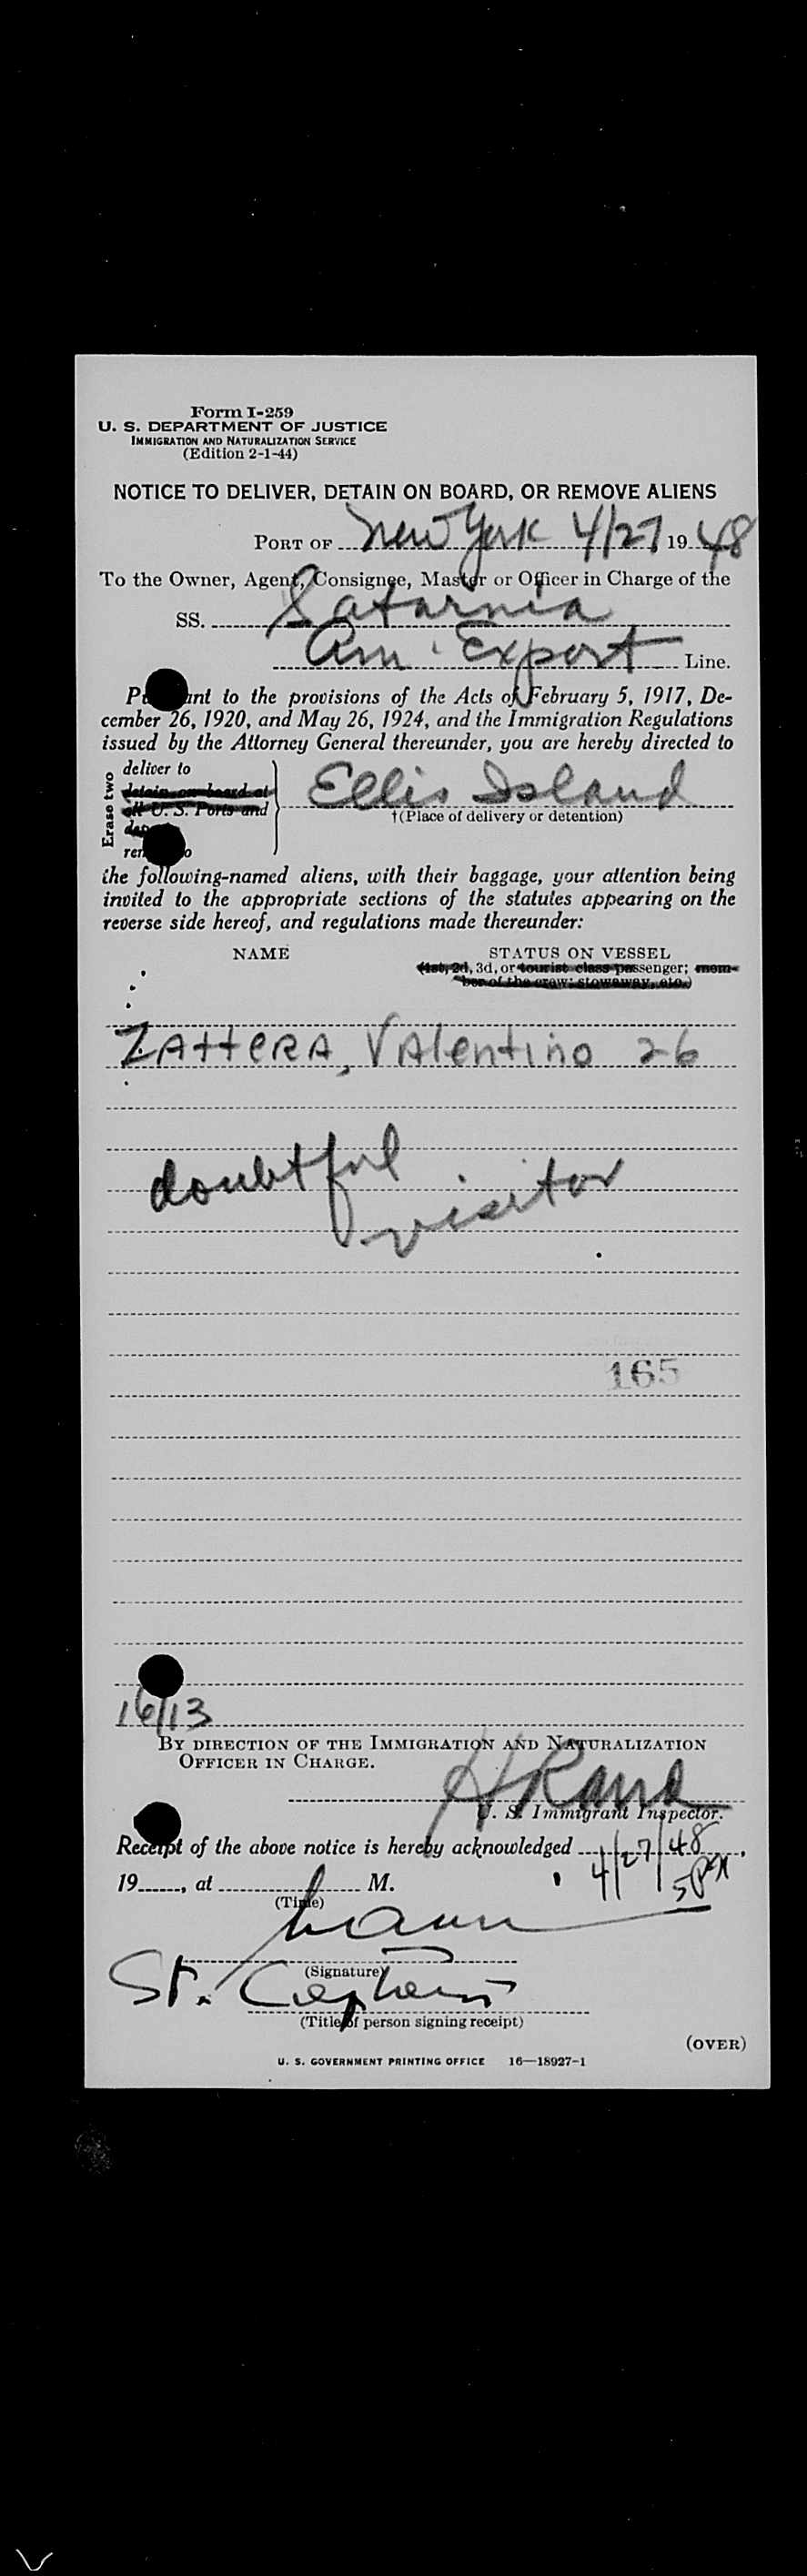 Form I-259
U. S. DEPARTMENT OF JUSTICE
IMMIGRATION AND NATURALIZATION SERVICE
(Edition 2-1-44)
NOTICE TO DELIVER, DETAIN ON BOARD, OR REMOVE ALIENS
PORT OF New York 4/27 1948
To the Owner, Agent, Consignee, Master or Officer in Charge of the
SS. Saturnia
Am. Export Line.
to the provisions of the Acts of February 5, 1917, De-
cember 26, 1920, and May 26, 1924, and the Immigration Regulations
issued by the Attorney General thereunder, you are hereby directed to
Erase two
deliver to
detain on board at
all U. S. Ports and
Ellis Island
†(Place of delivery or detention)
the following-named aliens, with their baggage, your attention being
invited to the appropriate sections of the statutes appearing on the
reverse side hereof, and regulations made thereunder:
NAME STATUS ON VESSEL
(1st, 2d, 3d, or tourist class passenger; mem-
ber of the crew; stowaway, etc.)
ZAttERA, VAlentino 26
doubtful
visitor
165
16/13
BY DIRECTION OF THE IMMIGRATION AND NATURALIZATION
OFFICER IN CHARGE.
U. S. Immigrant Inspector.
Receipt of the above notice is hereby acknowledged 4/27/48,
19......, at M. 5 PM
(Time)
(Signature)
(Title of person signing receipt)
(OVER)
U. S. GOVERNMENT PRINTING OFFICE 16—18927-1